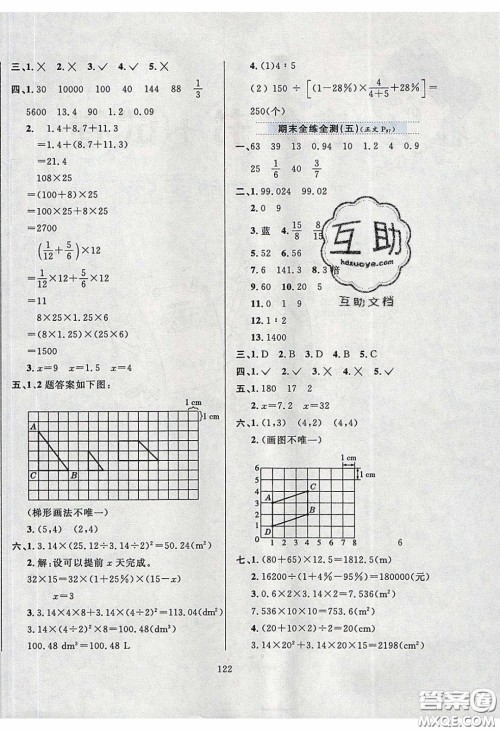 三、1.× 2.× 3.× 4.✓ 5.×
四、1. 30 10000 100 40 144 88 1/3
5600 13.09 0.9 2 0.1
2. 1.4+8.7+11.3
=1.4+(8.7+11.3)
=21.4
108×25
=(100+8)×25
=100×25+8×25
=2700
(1/12+5/6)×12
=1/12×12+5/6×12
=11
8×25×1.25×6
=(8×1.25)×(25×6)
=1500
3. x=9 x=1.5 x=4
五、1.2题答案如下图：
1 cm
1 cm
A
C B
(梯形画法不唯一)
3.(5,4) (2,4)
六、1. 3.14×(25.12÷3.14÷2)²=50.24(m²)
2. 解：设可以提前 x 天完成。
32×15=32×(1+25%)×(15−x)
x=3
3. 3.14×4×8+3.14×(4÷2)²=113.04(dm²)
3.14×(4÷2)²×8=100.48(dm³)
100.48 dm³=100.48 L
4.(1) 4∶5
(2) 150÷[(1−28%)×4/(4+5)+28%]=
250(个)
期末全练全测(五)(正文P97)
一、63 39 13 0.94 10 0.09
25 1/4 40 6/7
二、1. 99.024 99.02
2. 0 9
3. 蓝 4. 15/8 8/15
5. 52 6. 56
7. 6 141.3 8. 3倍
9. 60 10. 20
11. 0 12.
13. 1.2
互助
hdzuoye.com
互助文档
三、1. D 2. B
四、1.✓ 2.✓
五、1. 180 17 2
2. x=2 x=32
六、1. (2,4) (4,2) (4,4)
2. (画图不唯一)
1 cm
1 cm
6
5
4
3
2
1
0
A C
B
D
1 2 3 4 5 6 7 8
6
七、1. (80+65)×12.5=1812.5(m)
2. 16200÷(1−1%)×(1−1%)=180000(元)
3. 0.6×2×3.14×2=7.536(m²)
7.536×10×2=150.72(m²)
4. 10×(2÷1)=20(cm)
20×(10÷2)²×3.14=2198(cm²)
122
答案圈
MXQE.COM